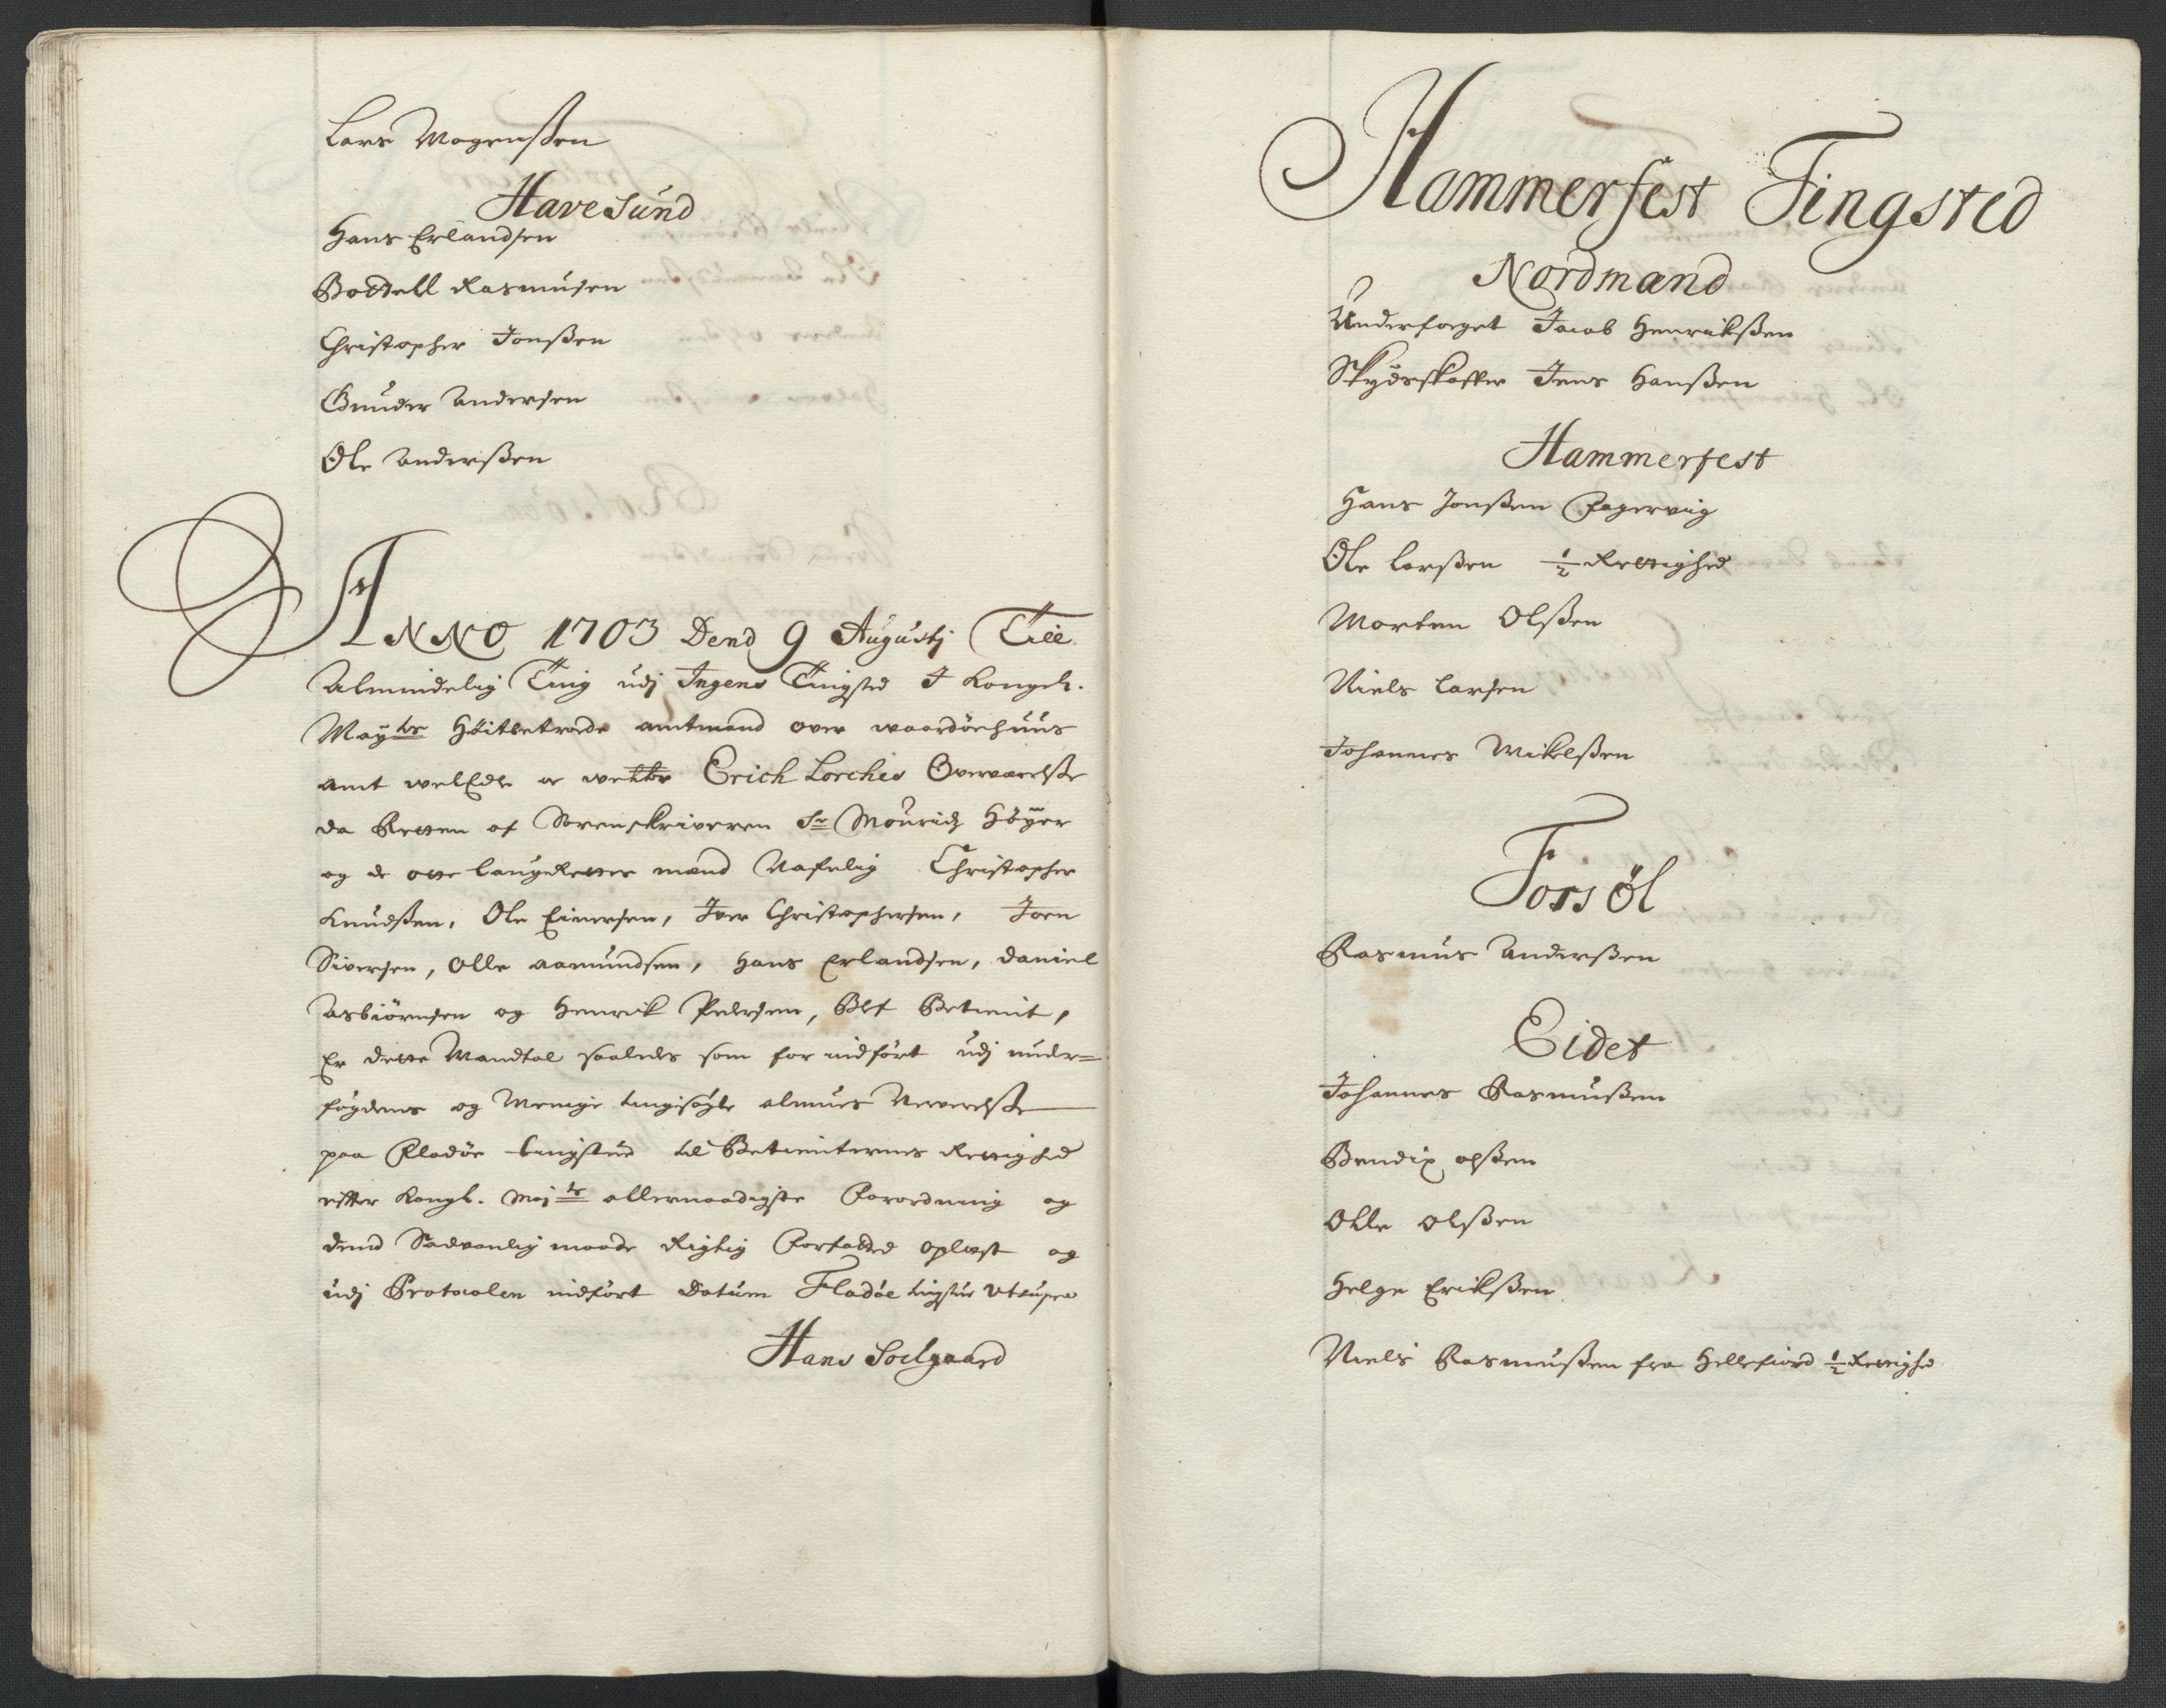 Lars Mogenßen
Havesund
Hans Erlandsen
Bottell Rasmusen
Christopher Jonßen
Gunder Andersen
Ole Anderßen
ANNO 1703 Dend 9 Augusti Till
Almindelig Ting udj Ingens Tingsted I Kongel.
Mayts Høitbetrode amtmand over waardøehuus
amt welEdle oc Erich Lorches Overværelße
da Retten af Sorenskriveren Sr Mouridz Høyer
og de otte laugRettes mænd Nafnlig Christopher
Knudßen, Ole Einersen, Iver Christophersen, Joen
Siversen, Olle Aamundsen, Hans Erlandsen, Daniel
Asbiørnsen og Henrik Pedersen, Blef Betient,
Er dette Mandtal saaledes som for indført udj under=
fogdens og Menige tingsøgte almues Nerverelße
paa Fladøe tingsted til Betienternes Rettighed
efter Kongl. Majts allernaadigste Forordning og
dend Sædvanlig maade Rigtig Forfatted oplæst og
udj Protocolen indført Datum Fladøe tingsted Ut supra
Hans Soelgaard
Hammerfest Tingsted
Nordmænd
Underfoget Jacob Henrikßen
Skydsskaffer Jens Hanßen
Hammerfest
Hans Jonßen Fagerviig
Ole Larßen 1/2 Rettighed
Morten Olßen
Niels Larsen
Johannes Mikelßen
Forsøl
Rasmus Anderßen
Eidet
Johannes Rasmußen
Bendix olßen
Olle olßen
Helge Erikßen
Niels Rasmußen fra Hellefiord 1/2 Rettighed